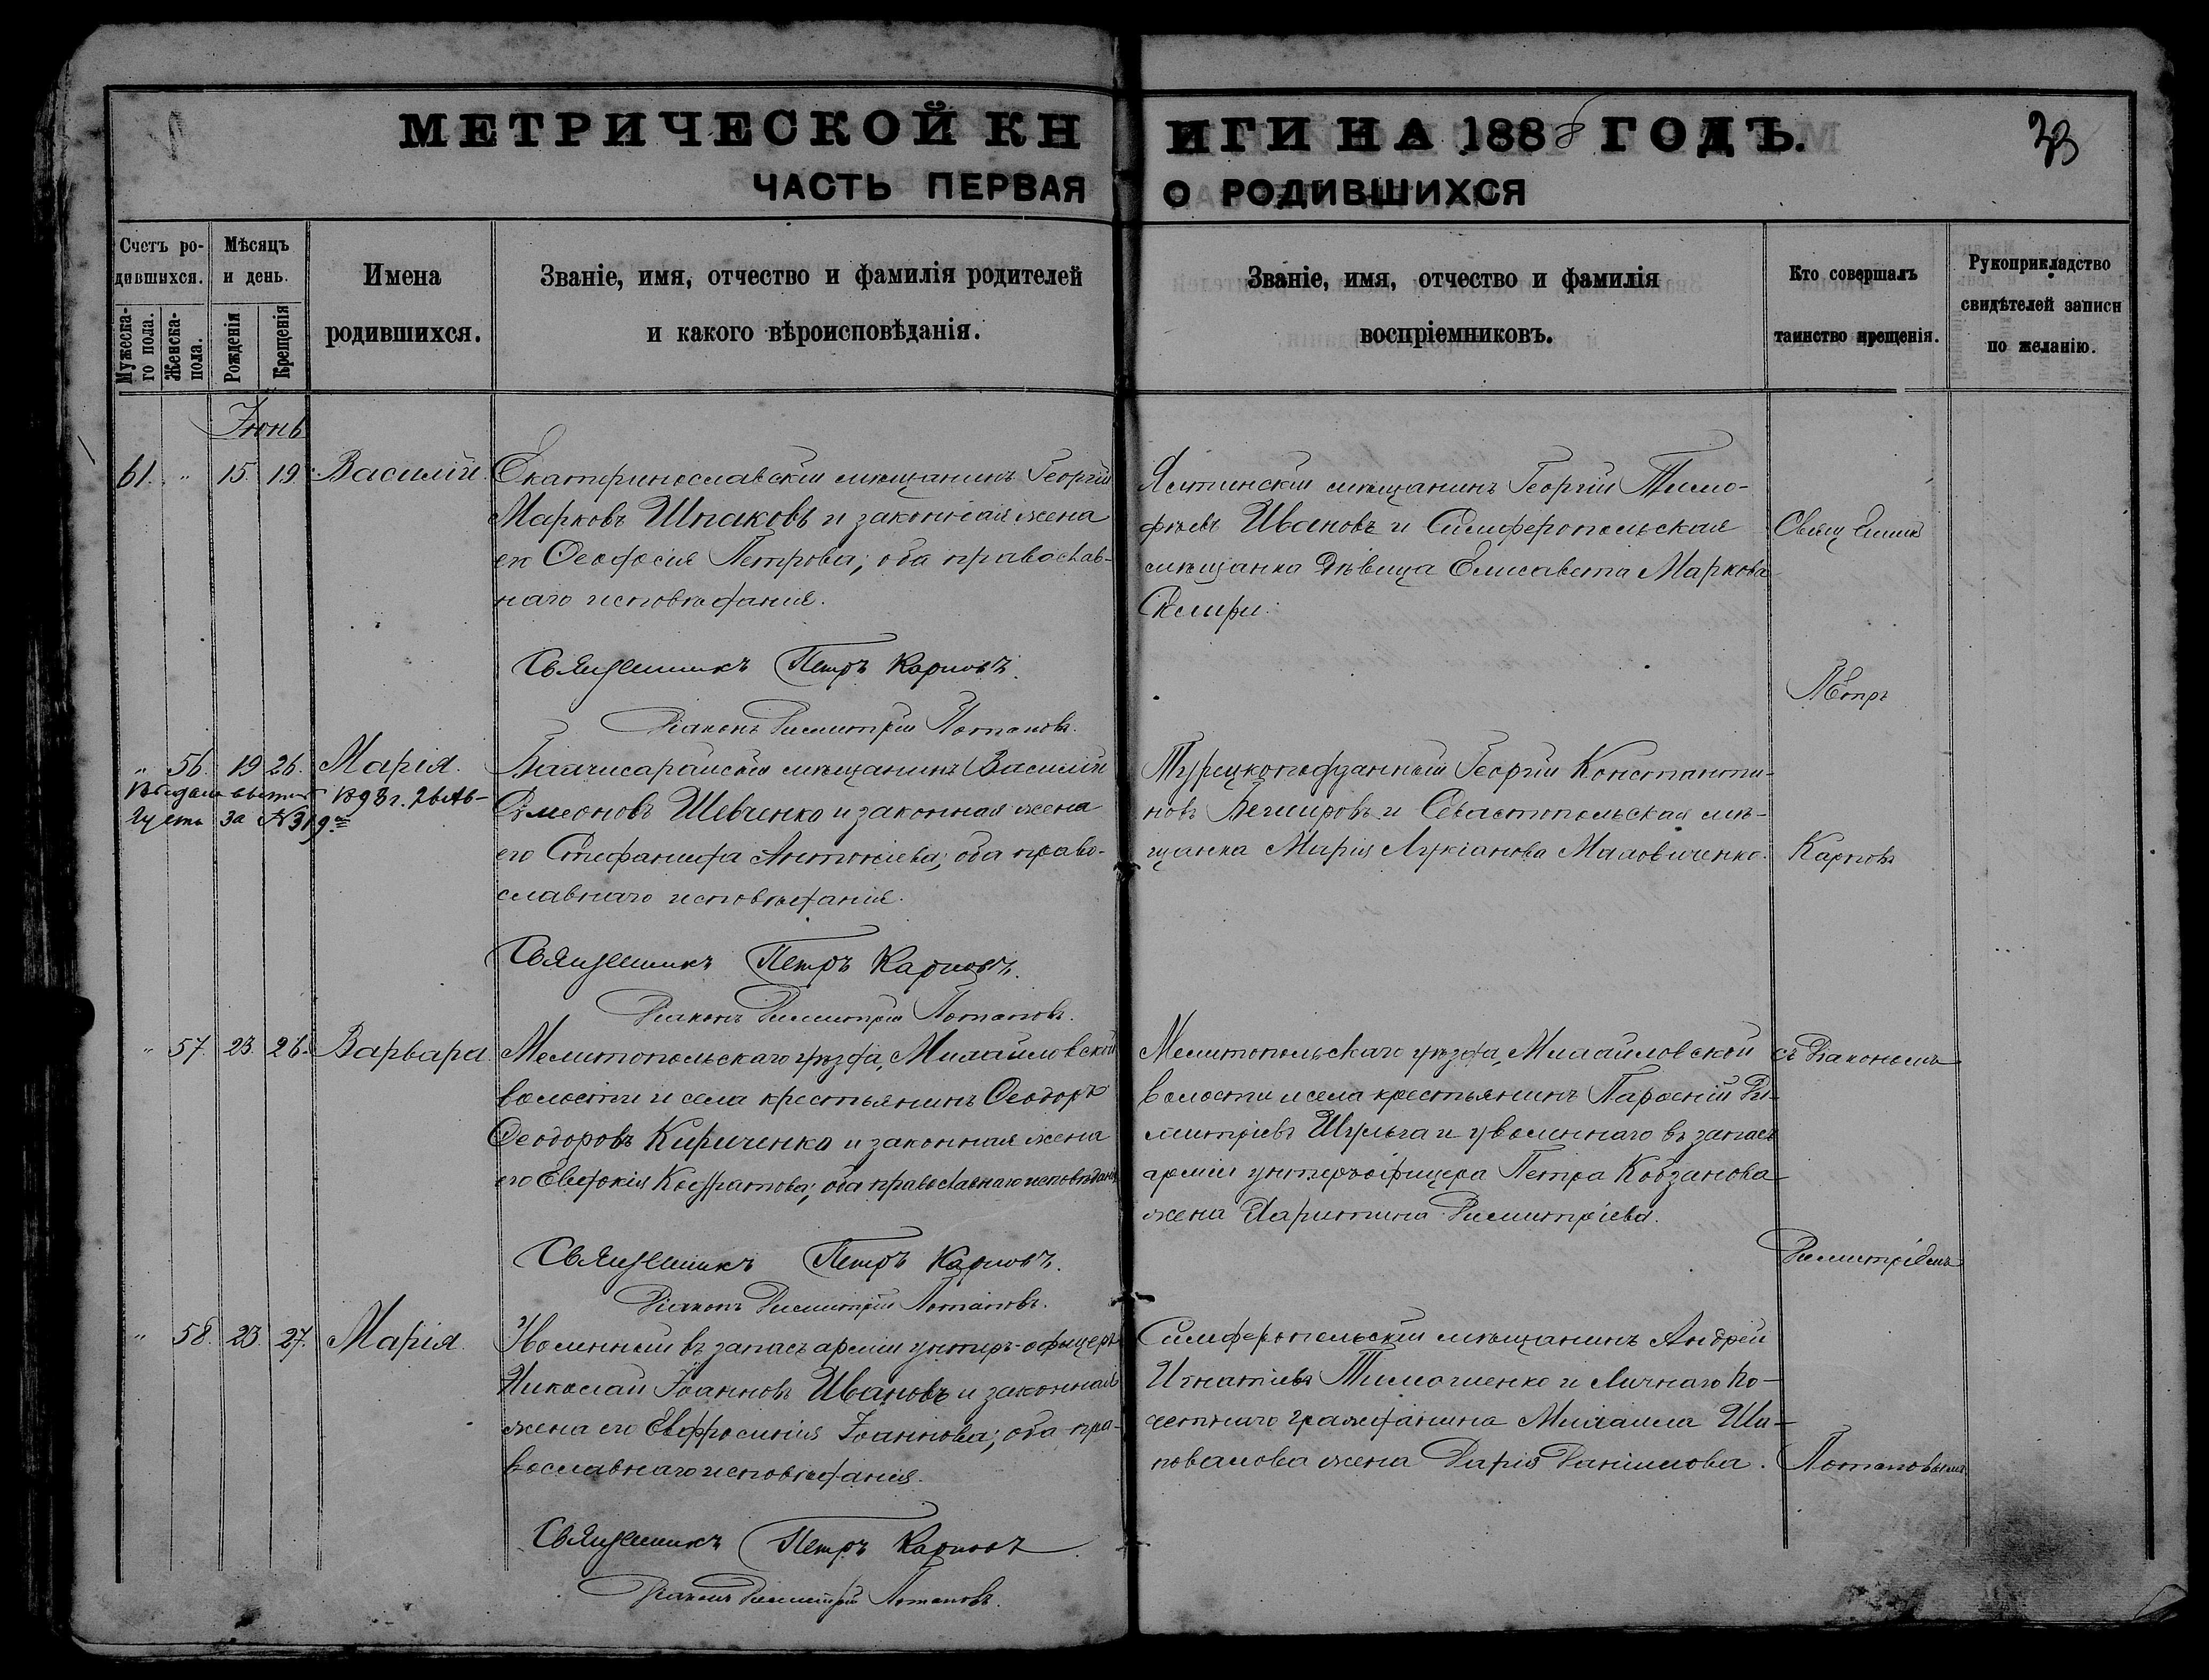 МЕТРИЧЕСКОЙ КНИГИ НА 1888 ГОДЪ.
33
ЧАСТЬ ПЕРВАЯ О РОДИВШИХСЯ
Счетъ ро-
дившихся.
Мужеска-
го пола.
Женска-
пола.
Мѣсяцъ
и день.
Рожденія
Крещенія
Имена
родившихся.
Званіе, имя, отчество и фамилія родителей
и какого вѣроисповѣданія.
Званіе, имя, отчество и фамилія
воспріемниковъ.
Кто совершалъ
таинство крещенія.
Рукоприкладство
свидѣтелей записи
по желанію.
Іюнь
61. " 15. 19. Василій.
Екатеринославскій мѣщанинъ Георгій
Марковъ Шпаковъ и законная жена
его Ѳеодосія Петрова; оба православ-
наго исповѣданія.
Священникъ Петръ Карповъ.
Діаконъ Димитрій Потаповъ.
Ялтинскій мѣщанинъ Георгій Тимо-
феевъ Ивановъ и Симферопольская
мѣщанка дѣвица Елисавета Маркова
" 56. 19 26. Марія.
Выдано 1893 г. 2 Ав-
густа за №319
Бахчисарайскій мѣщанинъ Василій
Симеоновъ Шевченко и законная жена
его Стефанида Антоніева; оба право-
славнаго исповѣданія.
Священникъ Петръ Карповъ.
Діаконъ Димитрій Потаповъ.
Турецкоподданный Георгій Константи-
новъ и Севастопольская мѣ-
щанка Марія Лукіанова Маловиченко.
" 57. 23. 26. Варвара.
Мелитопольскаго уѣзда, Михайловской
волости и села крестьянинъ Ѳеодоръ
Ѳеодоровъ Кириченко и законная жена
его Евдокія Кодратова; оба православнаго исповѣданія
Священникъ Петръ Карповъ.
Діаконъ Димитрій Потаповъ.
Мелитопольскаго уѣзда, Михайловской
волости и села крестьянинъ Парѳеній Ди-
митріевъ Шульга и уволеннаго въ запасъ
арміи унтеръ-офицера Петра Кобзанова
жена Харитина Димитріева.
" 58. 23. 27. Марія.
Уволенный въ запасъ арміи унтеръ-офицеръ
Николай Іоанновъ Ивановъ и законная
жена его Евфросинія Іоаннова; оба пра-
вославнаго исповѣданія.
Священникъ Петръ Карповъ
Діаконъ Димитрій Потаповъ.
Симферопольскій мѣщанинъ Андрей
Игнатіевъ Тимошенко и личнаго По-
четнаго гражданина Михаила Ша-
повалова жена Дарія Даніилова.
Священникъ
Петръ
Карповъ
съ Діакономъ
Димитріемъ
Потаповымъ